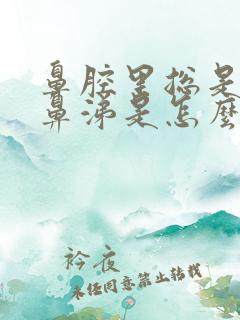 鼻腔里总是
鼻涕是怎么
衿夜
未经同意禁止转载